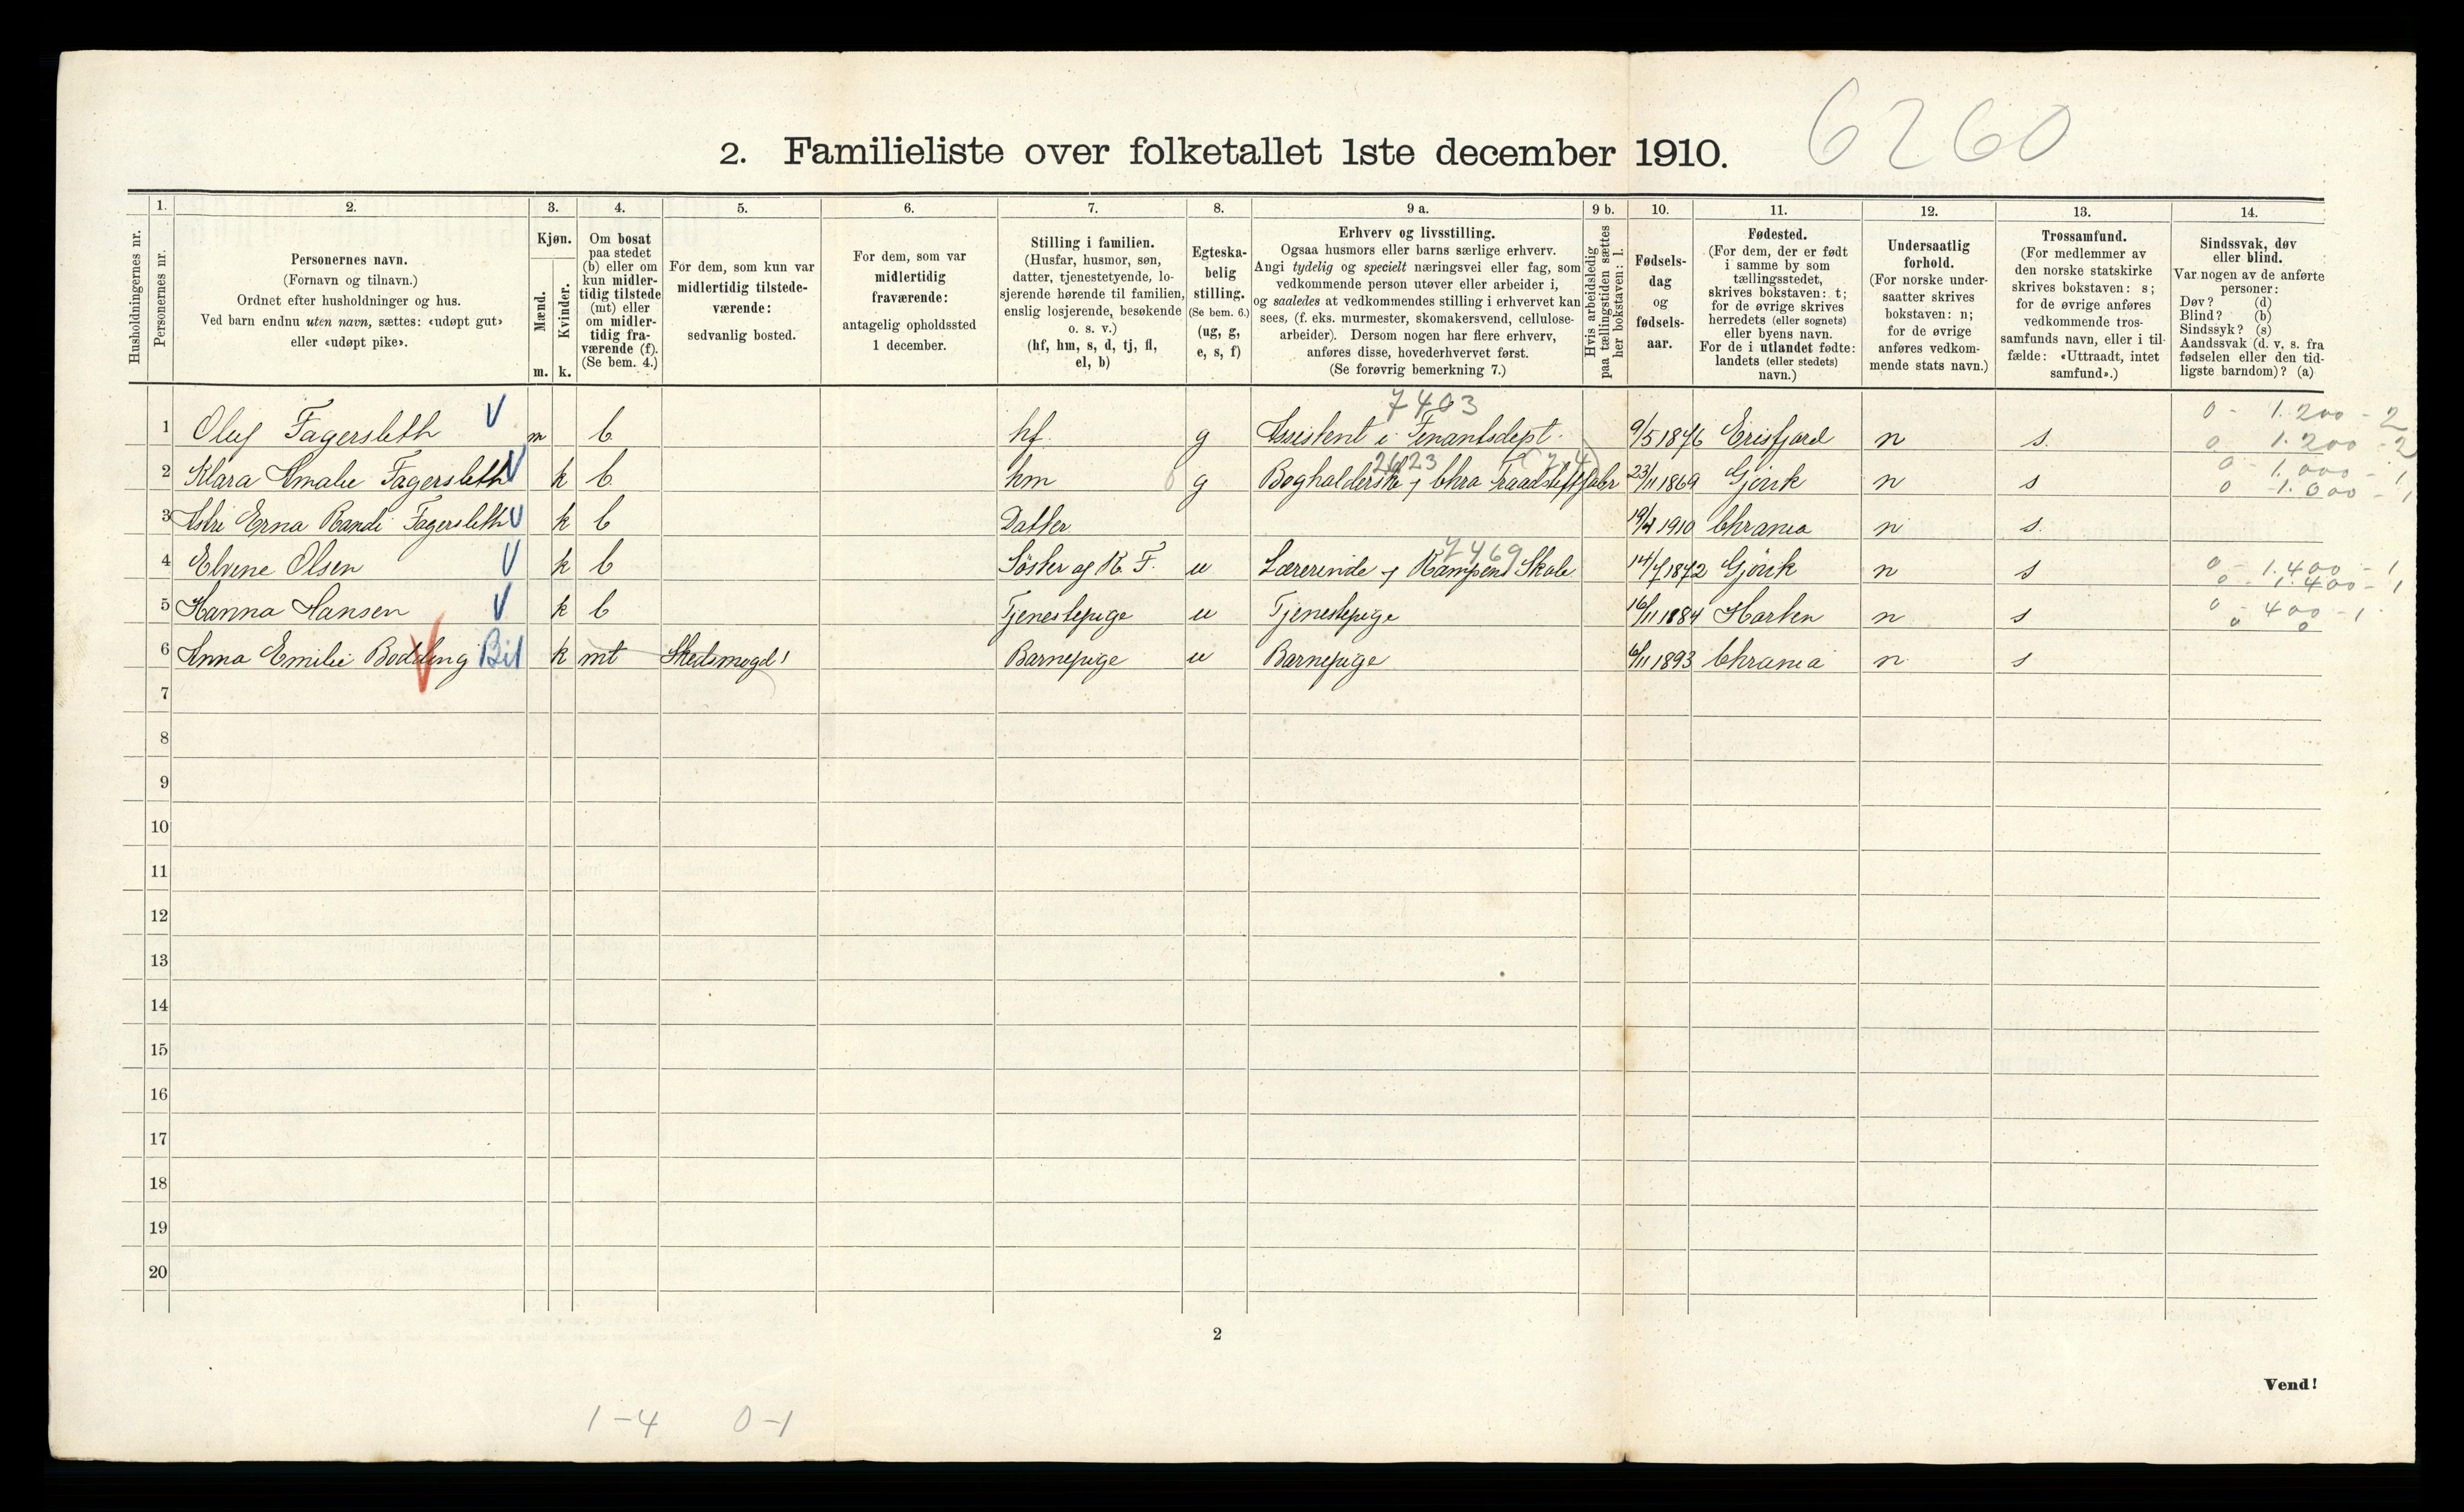 6260
2. Familieliste over folketallet 1ste december 1910.
Husholdningernes nr.
1.
Personernes nr.
2.
Personernes navn.
(Fornavn og tilnavn.)
Ordnet efter husholdninger og hus.
Ved barn endnu uten navn, sættes: «udøpt gut»
eller «udøpt pike».
3.
Kjøn.
Mænd.
Kvinder.
m. k.
4.
Om bosat
paa stedet
(b) eller om
kun midler-
tidig tilstede
(mt) eller
om midler-
tidig fra-
værende (f).
(Se bem. 4.)
5.
For dem, som kun var
midlertidig tilstede-
værende:
sedvanlig bosted.
6.
For dem, som var
midlertidig
fraværende:
antagelig opholdssted
1 december.
7.
Stilling i familien.
(Husfar, husmor, søn,
datter, tjenestetyende, lo-
sjerende hørende til familien,
enslig losjerende, besøkende
o. s. v.)
(hf, hm, s, d, tj, fl,
el, b)
8.
Egteska-
belig
stilling.
(Se bem. 6.)
(ug, g,
e, s, f)
9 a.
Erhverv og livsstilling.
Ogsaa husmors eller barns særlige erhverv.
Angi tydelig og specielt næringsvei eller fag, som
vedkommende person utøver eller arbeider i,
og saaledes at vedkommendes stilling i erhvervet kan
sees, (f. eks. murmester, skomakersvend, cellulose-
arbeider). Dersom nogen har flere erhverv,
anføres disse, hovederhvervet først.
(Se forøvrig bemerkning 7.)
9 b.
Hvis arbeidsledig
paa tællingstiden sættes
her bokstaven: l.
10.
Fødsels-
dag
og
fødsels-
aar.
11.
Fødested.
(For dem, der er født
i samme by som
tællingsstedet,
skrives bokstaven: t;
for de øvrige skrives
herredets (eller sognets)
eller byens navn.
For de i utlandet fødte:
landets (eller stedets)
navn.)
12.
Undersaatlig
forhold.
(For norske under-
saatter skrives
bokstaven: n;
for de øvrige
anføres vedkom-
mende stats navn.)
13.
Trossamfund.
(For medlemmer av
den norske statskirke
skrives bokstaven: s;
for de øvrige anføres
vedkommende tros-
samfunds navn, eller i til-
fælde: «Uttraadt, intet
samfund».)
14.
Sindssvak, døv
eller blind.
Var nogen av de anførte
personer:
Døv? (d)
Blind? (b)
Sindssyk? (s)
Aandssvak (d. v. s. fra
fødselen eller den tid-
ligste barndom)? (a)
7403
0 - 1.200 - 2
1 Oluf Fagersleth V m b hf g Assistent i Finantsdept. 9/5 1876 Erisfjord n s. 0 1.200 - 2
2623 0 - 1.000 - 1
2 Klara Amalie Fagersleth V k b hm g Bogholderske 23/11 1869 Gjøvik n s 0 - 1.000 - 1
3 Astri Erna Randi Fagersleth V k b Datter 1910 Chrania n s.
7469
4 Elvine Olsen V k b Søster af K. F. u Lærerinde Kampens Skole 1872 Gjøvik n s 0 - 1.400 - 1
0 - 1.400 - 1
5 Hanna Hansen V k b Tjenestepige u Tjenestepige 16/11 1884 Horten n s 0 - 400 - 1
0 0
6 Anna Emilie Bodding V Bil k mt Skedsmogd! Barnepige u Barnepige 6/11 1893 Chrania n s
7
8
9
10
11
12
13
14
15
16
17
18
19
20
2
Vend!
1-4 0-1